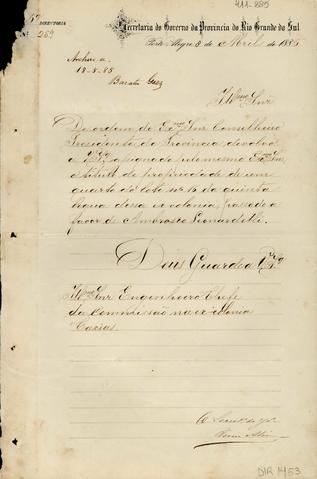 411-285
DIRECTORIA
Nº 269
Secretaria do Governo da Provincia do Rio Grande do Sul
Porto Alegre, 8 de Abril de 1885
Archive-se
18-8-85
Illmo Snr
De ordem do Exmo Snr Conselheiro
Presidente da Provincia devolvo
a VSª assignado pelo mesmo Exmo Snr
o titulo de propriedade de um
quarto do lote nº 6 da quinta
legua dessa ex colonia, passado a
favor de Ambrosio Leonardelli.
Deus Guarde a VSª
Illmo Snr Engenheiro Chefe
da Commissão na ex-colonia
Caxias.
DIR 1453